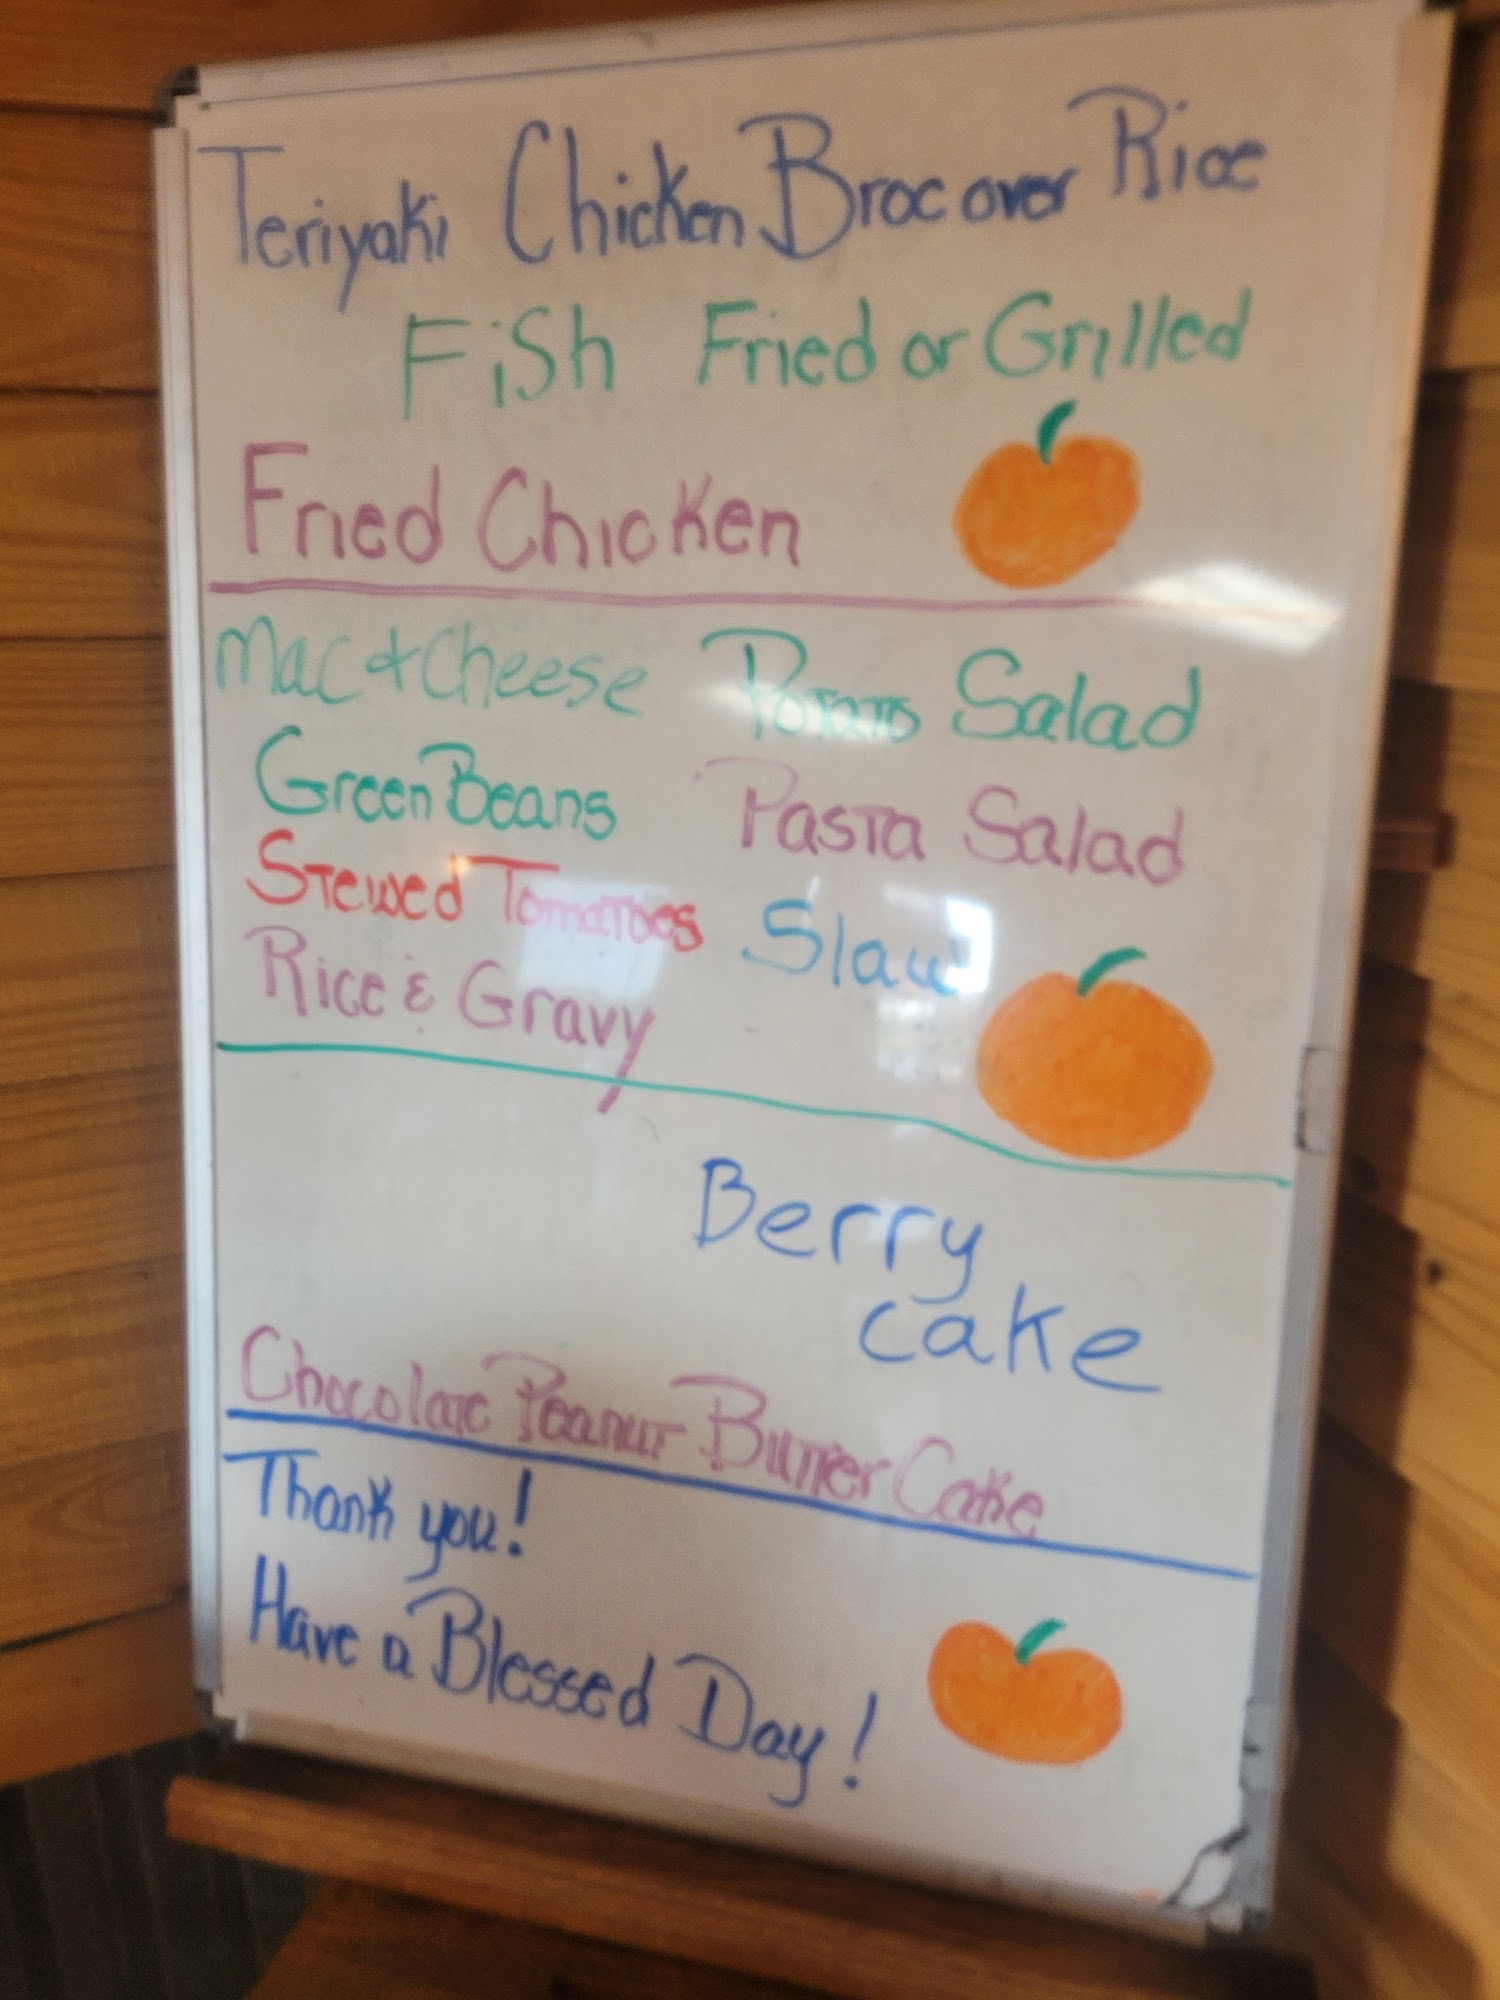 Teriyaki Chicken Broc over Rice
Fish Fried or Grilled
Fried Chicken
Mac & Cheese Potato Salad
Green Beans Pasta Salad
Stewed Tomatoes Slaw
Rice & Gravy
Berry
Cake
Chocolate Peanut Butter Cake
Thank you!
Have a Blessed Day!